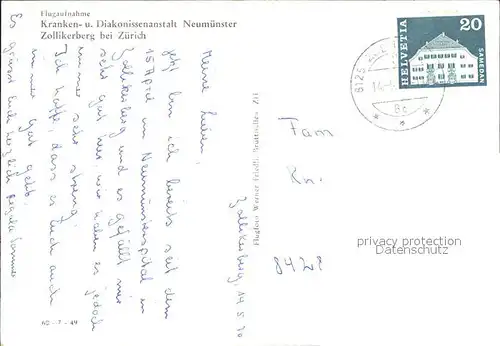 Flugaufnahme
Kranken- u. Diakonissenanstalt Neumünster
Zollikerberg bei Zürich
Zollikerberg, 14.5.70
Meine Lieben,
Jetzt bin ich bereits seit dem
15. April im Neumünsterspital in
Zollikerberg und es gefällt mir
sehr gut hier, wir haben es jedoch
immer sehr streng.
Ich hoffe, dass es Euch auch
immer gut geht.
Es grüsst Euch herzlich Regula
62 - 7 - 49
Flugfoto Werner Friedli, Brüttisellen ZH
HELVETIA
20
SAMEDAN
8125
14.
8c
Fam
Rn.
8428
privacy protection
Datenschutz